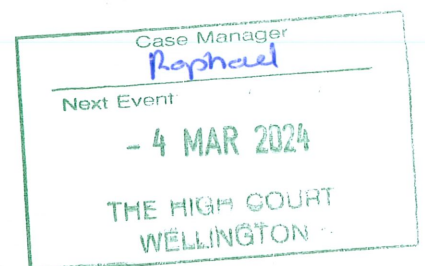 Case Manager
Raphael
Next Event
- 4 MAR 2024
THE HIGH COURT
WELLINGTON